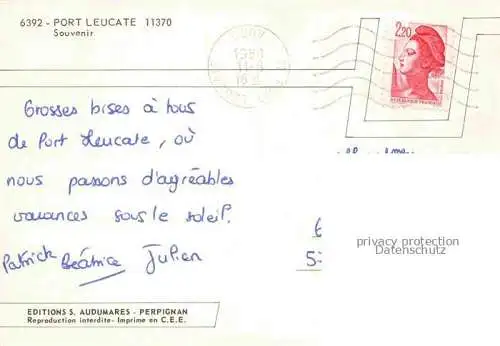 6392 - PORT LEUCATE 11370
Souvenir
2,20
Grosses bises à tous
de Port Leucate, où
nous passons d'agréables
vacances sous le soleil.
Patrick Béatrice Julien
privacy protection
Datenschutz
EDITIONS S. AUDUMARES - PERPIGNAN
Reproduction interdite - Imprime en C.E.E.